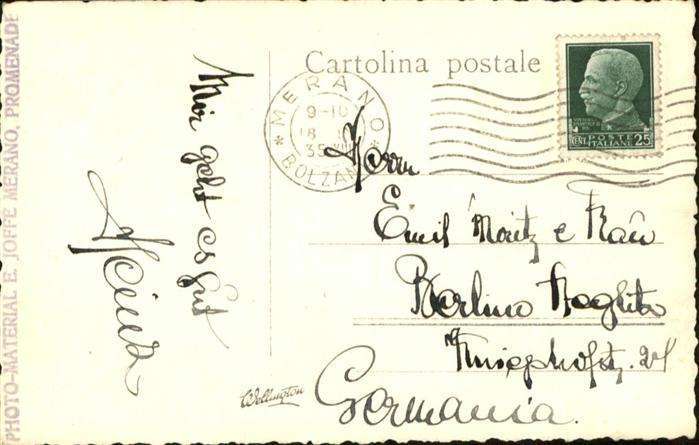 PHOTO-MATERIAL E. JOFFE MERANO, PROMENADE
Mir geht es gut
Heinz
Wellington
Cartolina postale
MERANO
9-10
18
35 XIII
BOLZANO
POSTE
ITALIANE
CENT. 25
Herrn
Emil Moritz e Frau
Berlino Steglitz
Germania